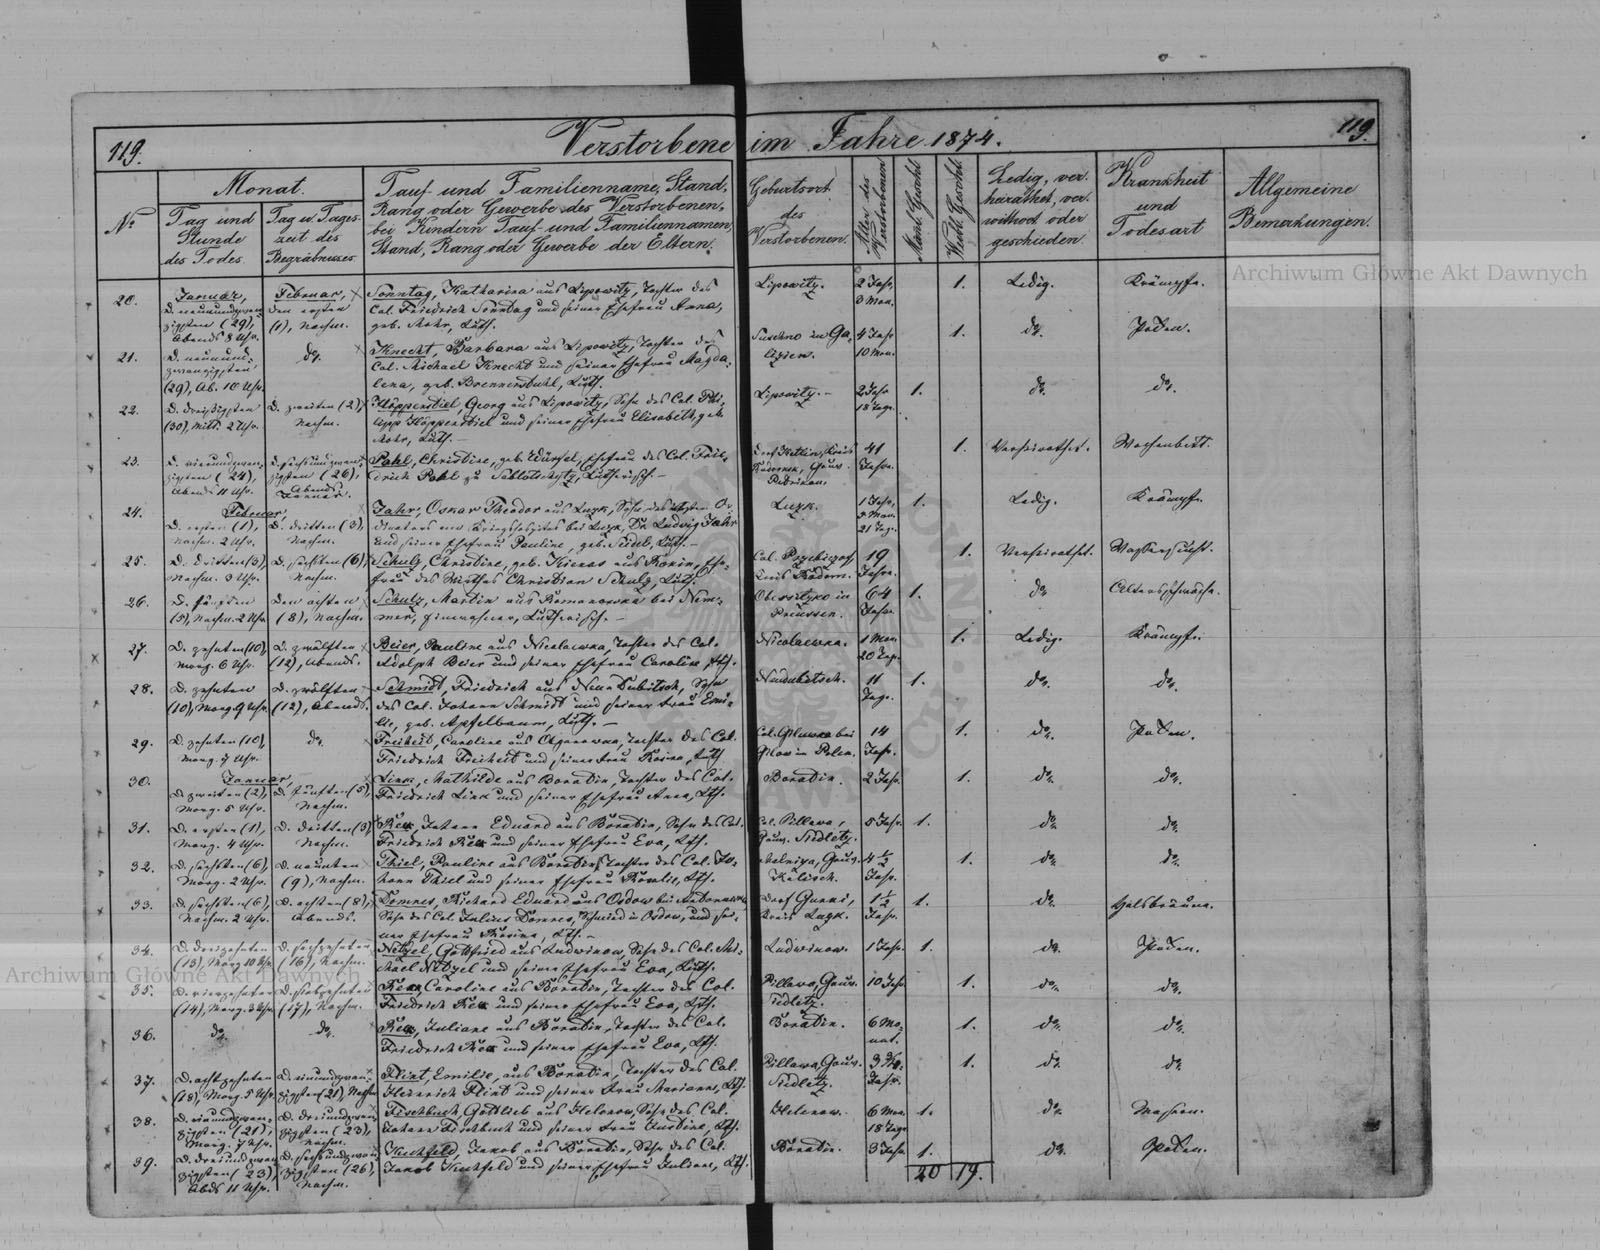 119.
Verstorbene im Jahre 1874.
119.
Nº
Monat.
Tag und
Stunde
des Todes.
Tag u. Tages-
zeit des
Begräbnisses.
Tauf- und Familienname, Stand,
Rang oder Gewerbe des Verstorbenen,
bei Kindern Tauf- und Familiennamen,
Stand, Rang oder Gewerbe der Eltern.
Geburtsort
des
Verstorbenen.
Alter des
Verstorbenen
Männl. Geschl.
Weibl. Geschl.
Ledig, ver-
heirathet, ver-
wittwet oder
geschieden.
Krankheit
und
Todesart
Allgemeine
Bemerkungen.
Archiwum Główne Akt Dawnych
20.
Januar,
D. neunundzwan-
zigsten (29),
Abends 8 Uhr.
Februar,
den ersten
(1), Nachm.
Sonntag, Katharina aus Lipowitz, Tochter des
Col. Friedrich Sonntag und seiner Ehefrau Anna,
geb. Mohr, Luth.
Lipowitz.
2 Jahr,
3 Mon.
1.
Ledig.
Krämpfe.
21.
D. neunund-
zwanzigsten
(29), Ab. 10 Uhr.
do.
Knecht, Barbara aus Lipowitz, Tochter des
Col. Michael Knecht und seiner Ehefrau Magda-
lena, geb. Brennenstuhl, Luth.
in Ga-
lizien.
4 Jahr
10 Mon.
1.
do.
Pocken.
22.
D. dreißigsten
(30), Mitt. 2 Uhr.
D. zweiten (2),
Nachm.
Klöppenstiel, Georg aus Lipowitz, Sohn des Col. Phi-
lipp Klöppenstiel und seiner Ehefrau Elisabeth, geb.
Mohr, Luth.
Lipowitz.
2 Jahr
18 Tage.
1.
do.
do.
23.
D. vierundzwan-
zigsten (24),
Abends 11 Uhr.
D. sechsundzwan-
zigsten (26),
Abends
Januar.
Pohl, Christine, geb. Würfel, Ehefrau des Col. Frie-
drich Pohl zu Lutherisch.
Dorf Kreis
Gouv.
Petrikau.
41
Jahre.
1.
Verheirathet.
Wochenbett.
24.
Februar,
D. ersten (1),
Nachm. 2 Uhr.
D. dritten (3),
Nachm.
Jahr, Oskar Theodor aus Luzk, Sohn des ältesten Or-
dinators am Kriegshospital bei Luzk, Dr. Ludwig Jahr
und seiner Ehefrau Pauline, geb. Seidel, Luth.
Luzk.
1 Jahr,
Mon.
21 Tage.
1.
Ledig.
Krämpfe.
25.
D. dritten (3),
Nachm. 3 Uhr.
D. sechsten (6),
Nachm.
Schulz, Christine, geb. aus Ehe-
frau des Wirthes Christian Schulz, Luth.
Col.
Kreis Radom.
19
Jahre.
1.
Verheirathet.
Wassersucht.
26.
D. fünften
(5), Nachm. 2 Uhr.
Den achten
(8), Nachm.
Schulz, Martin aus Romanowka bei Nem-
mer, Einwohner, Lutherisch.
Obersitzko in
Preussen.
64
Jahr.
1.
do.
Altersschwäche.
27.
D. zehnten (10),
Morg. 6 Uhr.
D. zwölften
(12), Abends.
Beier, Pauline aus Nicolaewka, Tochter des Col.
Adolph Beier und seiner Ehefrau Caroline, Lth.
Nicolaewka.
1 Mon.
20 Tage.
1.
Ledig.
Krämpfe.
28.
D. zehnten
(10), Morg. 9 Uhr.
D. zwölften
(12), Abends.
Schmidt, Friedrich aus Neu-Dubitsch, Sohn
des Col. Johann Schmidt und seiner Frau Emi-
lie, geb. Apfelbaum, Luth.
Neudubitsch.
11
Tage.
1.
do.
do.
29.
D. zehnten (10),
Morg. 7 Uhr.
do.
Freiheit, Caroline aus Tochter des Col.
Friedrich Freiheit und seiner Frau Rosine, Luth.
Col. bei
in Polen.
14
Jahr.
1.
do.
Pocken.
30.
Januar,
D. zweiten (2),
Morg. 5 Uhr.
D. fünften (5),
Nachm.
Link, Mathilde aus Boratin, Tochter des Col.
Friedrich Link und seiner Ehefrau Anna, Lth.
Boratin.
2 Jahr.
1.
do.
do.
31.
D. ersten (1),
Morg. 4 Uhr.
D. dritten (3),
Nachm.
Johann Eduard aus Boratin, Sohn des Col.
Friedrich und seiner Ehefrau Eva, Lth.
Col. Pillawa,
Gouv. Siedletz.
5 Jahr.
1.
do.
do.
32.
D. sechsten (6),
Morg. 2 Uhr.
D. neunten
(9), Nachm.
Thiel, Pauline aus Boratin, Tochter des Col. Jo-
hann Thiel und seiner Ehefrau Rosalie, Lth.
Gouv.
Kalisch.
4 1/2
Jahr.
1.
do.
do.
33.
D. sechsten (6),
Nachm. 2 Uhr.
D. achten (8),
Abends.
Domnes, Richard Eduard aus Osdow bei
Sohn des Col. Julius Domnes, Schmied in Osdow, und sei-
ner Ehefrau Rosine, Lth.
Dorf
Kreis Luzk.
1 1/2
Jahr.
1.
do.
Halsbräune.
34.
D. dreizehnten
(13), Morg. 10 Uhr.
D. sechzehnten
(16), Nachm.
Netzel, Gottfried aus Ludwinow, Sohn des Col. Mi-
chael Netzel und seiner Ehefrau Eva, Luth.
Ludwinow.
1 Jahr.
1.
do.
Pocken.
Archiwum Główne Akt Dawnych
35.
D. vierzehnten
(14), Morg. 3 Uhr.
D. siebzehnten
(17), Nachm.
Caroline aus Boratin, Tochter des Col.
Friedrich und seiner Ehefrau Eva, Lth.
Pillawa, Gouv.
Siedletz.
10 Jahr.
1.
do.
do.
36.
do.
do.
Juliane aus Boratin, Tochter des Col.
Friedrich und seiner Ehefrau Eva, Lth.
Boratin.
6 Mo-
nat.
1.
do.
do.
37.
D. achtzehnten
(18), Morg. 5 Uhr.
D. einundzwan-
zigsten (21), Nachm.
Flint, Emilie, aus Boratin, Tochter des Col.
Heinrich Flint und seiner Frau Marianne, Lth.
Pillawa, Gouv.
Siedletz.
3
Jahr.
1.
do.
do.
38.
D. einundzwan-
zigsten (21),
Morg. 7 Uhr.
D. dreiundzwan-
zigsten (23),
Nachm.
Fischbuch, Gottlieb aus Helenow, Sohn des Col.
Johann Fischbuch und seiner Frau Justine, Lth.
Helenow.
6 Mon.
18 Tage
1.
do.
Masern.
39.
D. dreiundzwan-
zigsten (23),
Abds 11 Uhr.
D. sechsundzwan-
zigsten (26),
Nachm.
Jakob aus Boratin, Sohn des Col.
Jakob und seiner Ehefrau Juliane, Lth.
Boratin.
3 Jahr
1.
do.
Pocken.
20
19.